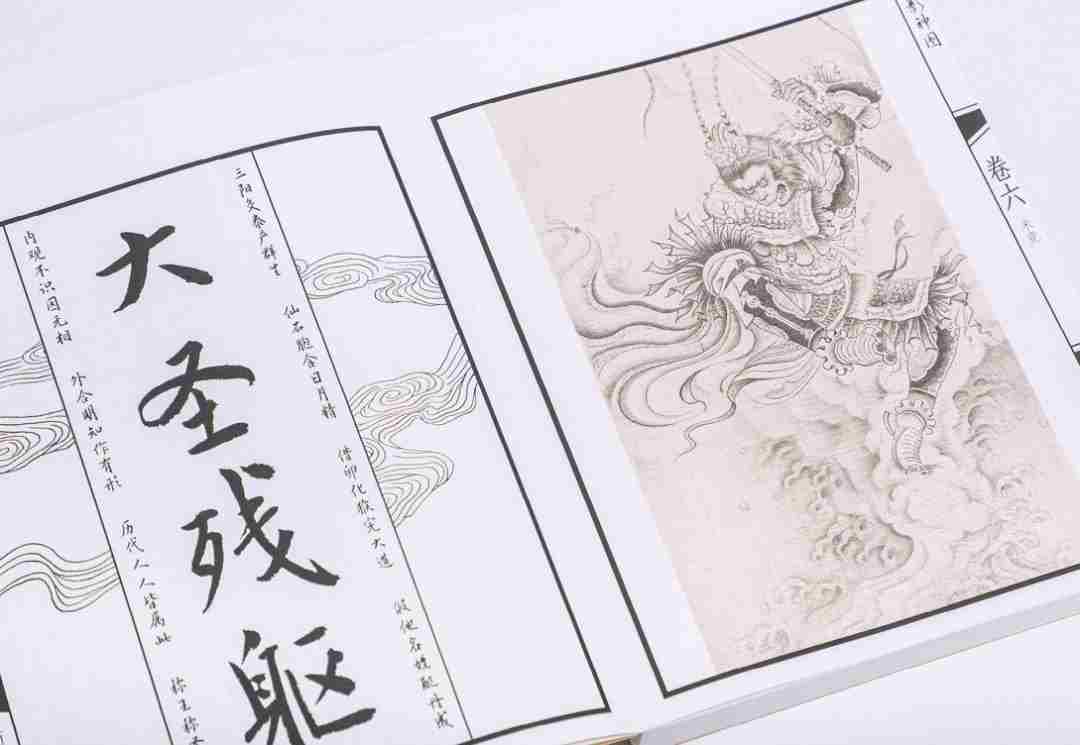 三阳交泰产群生 仙石胞含日月精 借卵化猴完大道 假他名姓配丹成
大圣残躯
内观不识因无相 外合明知作有形 历代人人皆属此 称王称
影神图
卷六 未竟